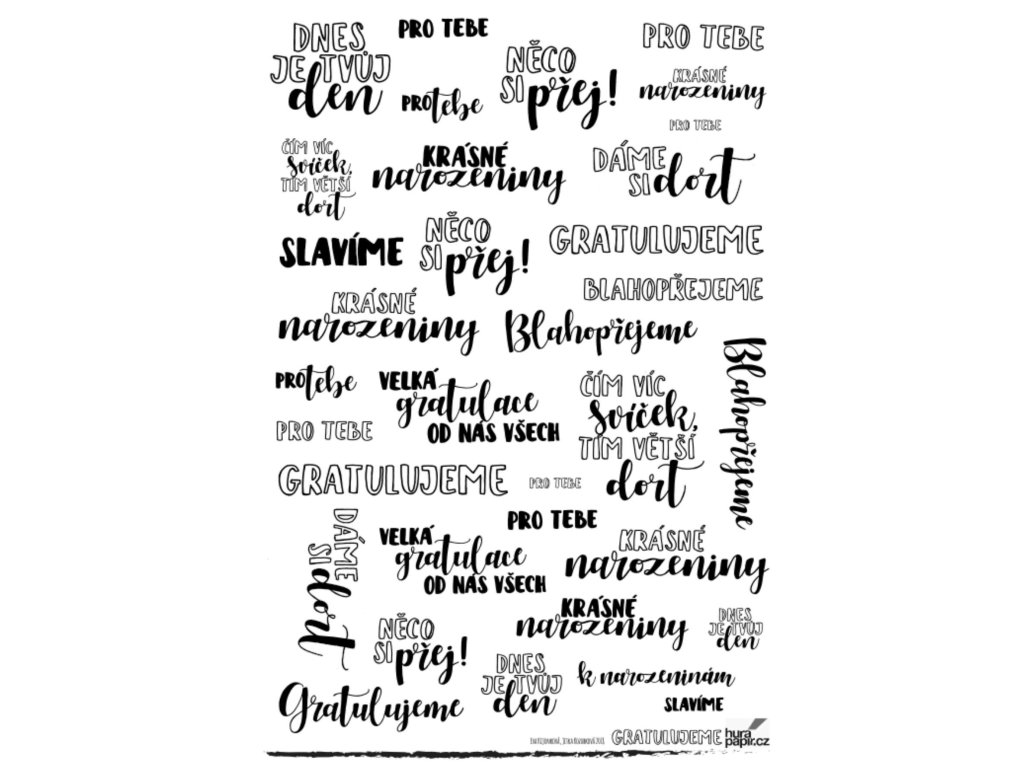 DNES
JE TVŮJ
den
PRO TEBE
PRO tebe
NĚCO
SI přej!
PRO TEBE
KRÁSNÉ
narozeniny
PRO TEBE
ČÍM VÍC
svíček,
TÍM VĚTŠÍ
dort
KRÁSNÉ
narozeniny
DÁME
SI dort
SLAVÍME
NĚCO
SI přej!
GRATULUJEME
BLAHOPŘEJEME
KRÁSNÉ
narozeniny
Blahopřejeme
Blahopřejeme
PRO tebe
VELKÁ
gratulace
OD NÁS VŠECH
ČÍM VÍC
svíček,
TÍM VĚTŠÍ
dort
PRO TEBE
GRATULUJEME
PRO TEBE
DÁME
SI dort
VELKÁ
gratulace
OD NÁS VŠECH
PRO TEBE
KRÁSNÉ
narozeniny
KRÁSNÉ
narozeniny
DNES
JE TVŮJ
den
NĚCO
SI přej!
DNES
JE TVŮJ
den
k narozeninám
SLAVÍME
Gratulujeme
GRATULUJEME
hura
papir.cz